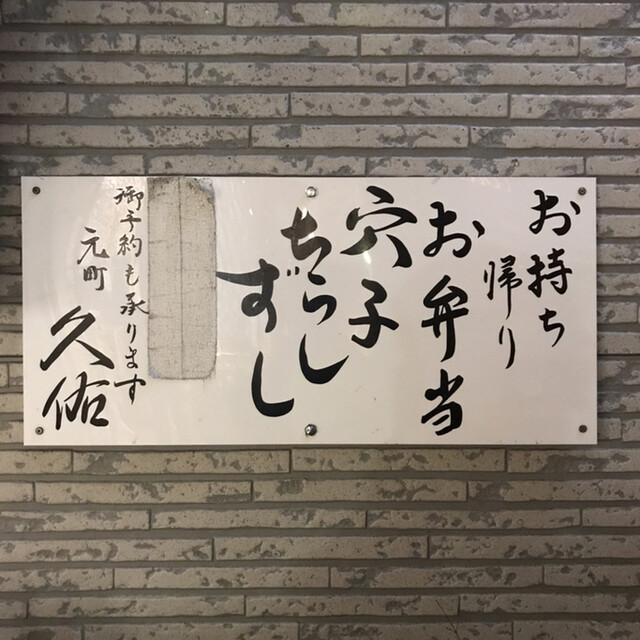 お持ち
帰り
お弁当
穴子
ちらし
ずし
御予約も承ります
元町
久佑